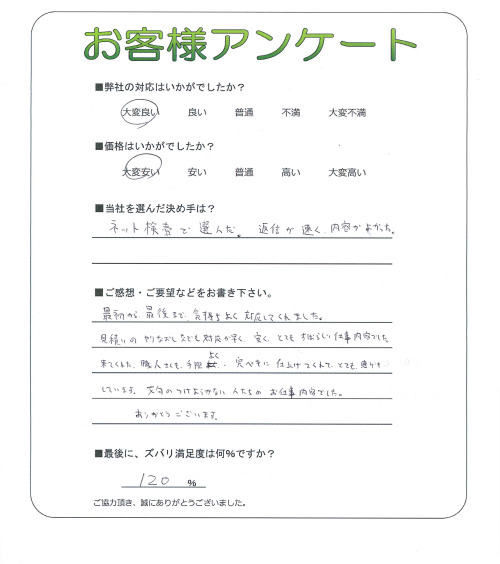 お客様アンケート
■弊社の対応はいかがでしたか？
大変良い 良い 普通 不満 大変不満
■価格はいかがでしたか？
大変安い 安い 普通 高い 大変高い
■当社を選んだ決め手は？
ネット検索で選んだ。返信が速く、内容がよかった。
■ご感想・ご要望などをお書き下さい。
最初から最後まで、気持ちよく対応してくれました。
見積りのやりなおしなども対応が早く、安く、とてもすばらしい仕事内容でした
来てくれた、職人さんも、手際よく、完ぺきに仕上げてくれて、とても、感謝も
しています。文句のつけようがない人たちのお仕事内容でした。
ありがとうございます。
■最後に、ズバリ満足度は何％ですか？
120 ％
ご協力頂き、誠にありがとうございました。